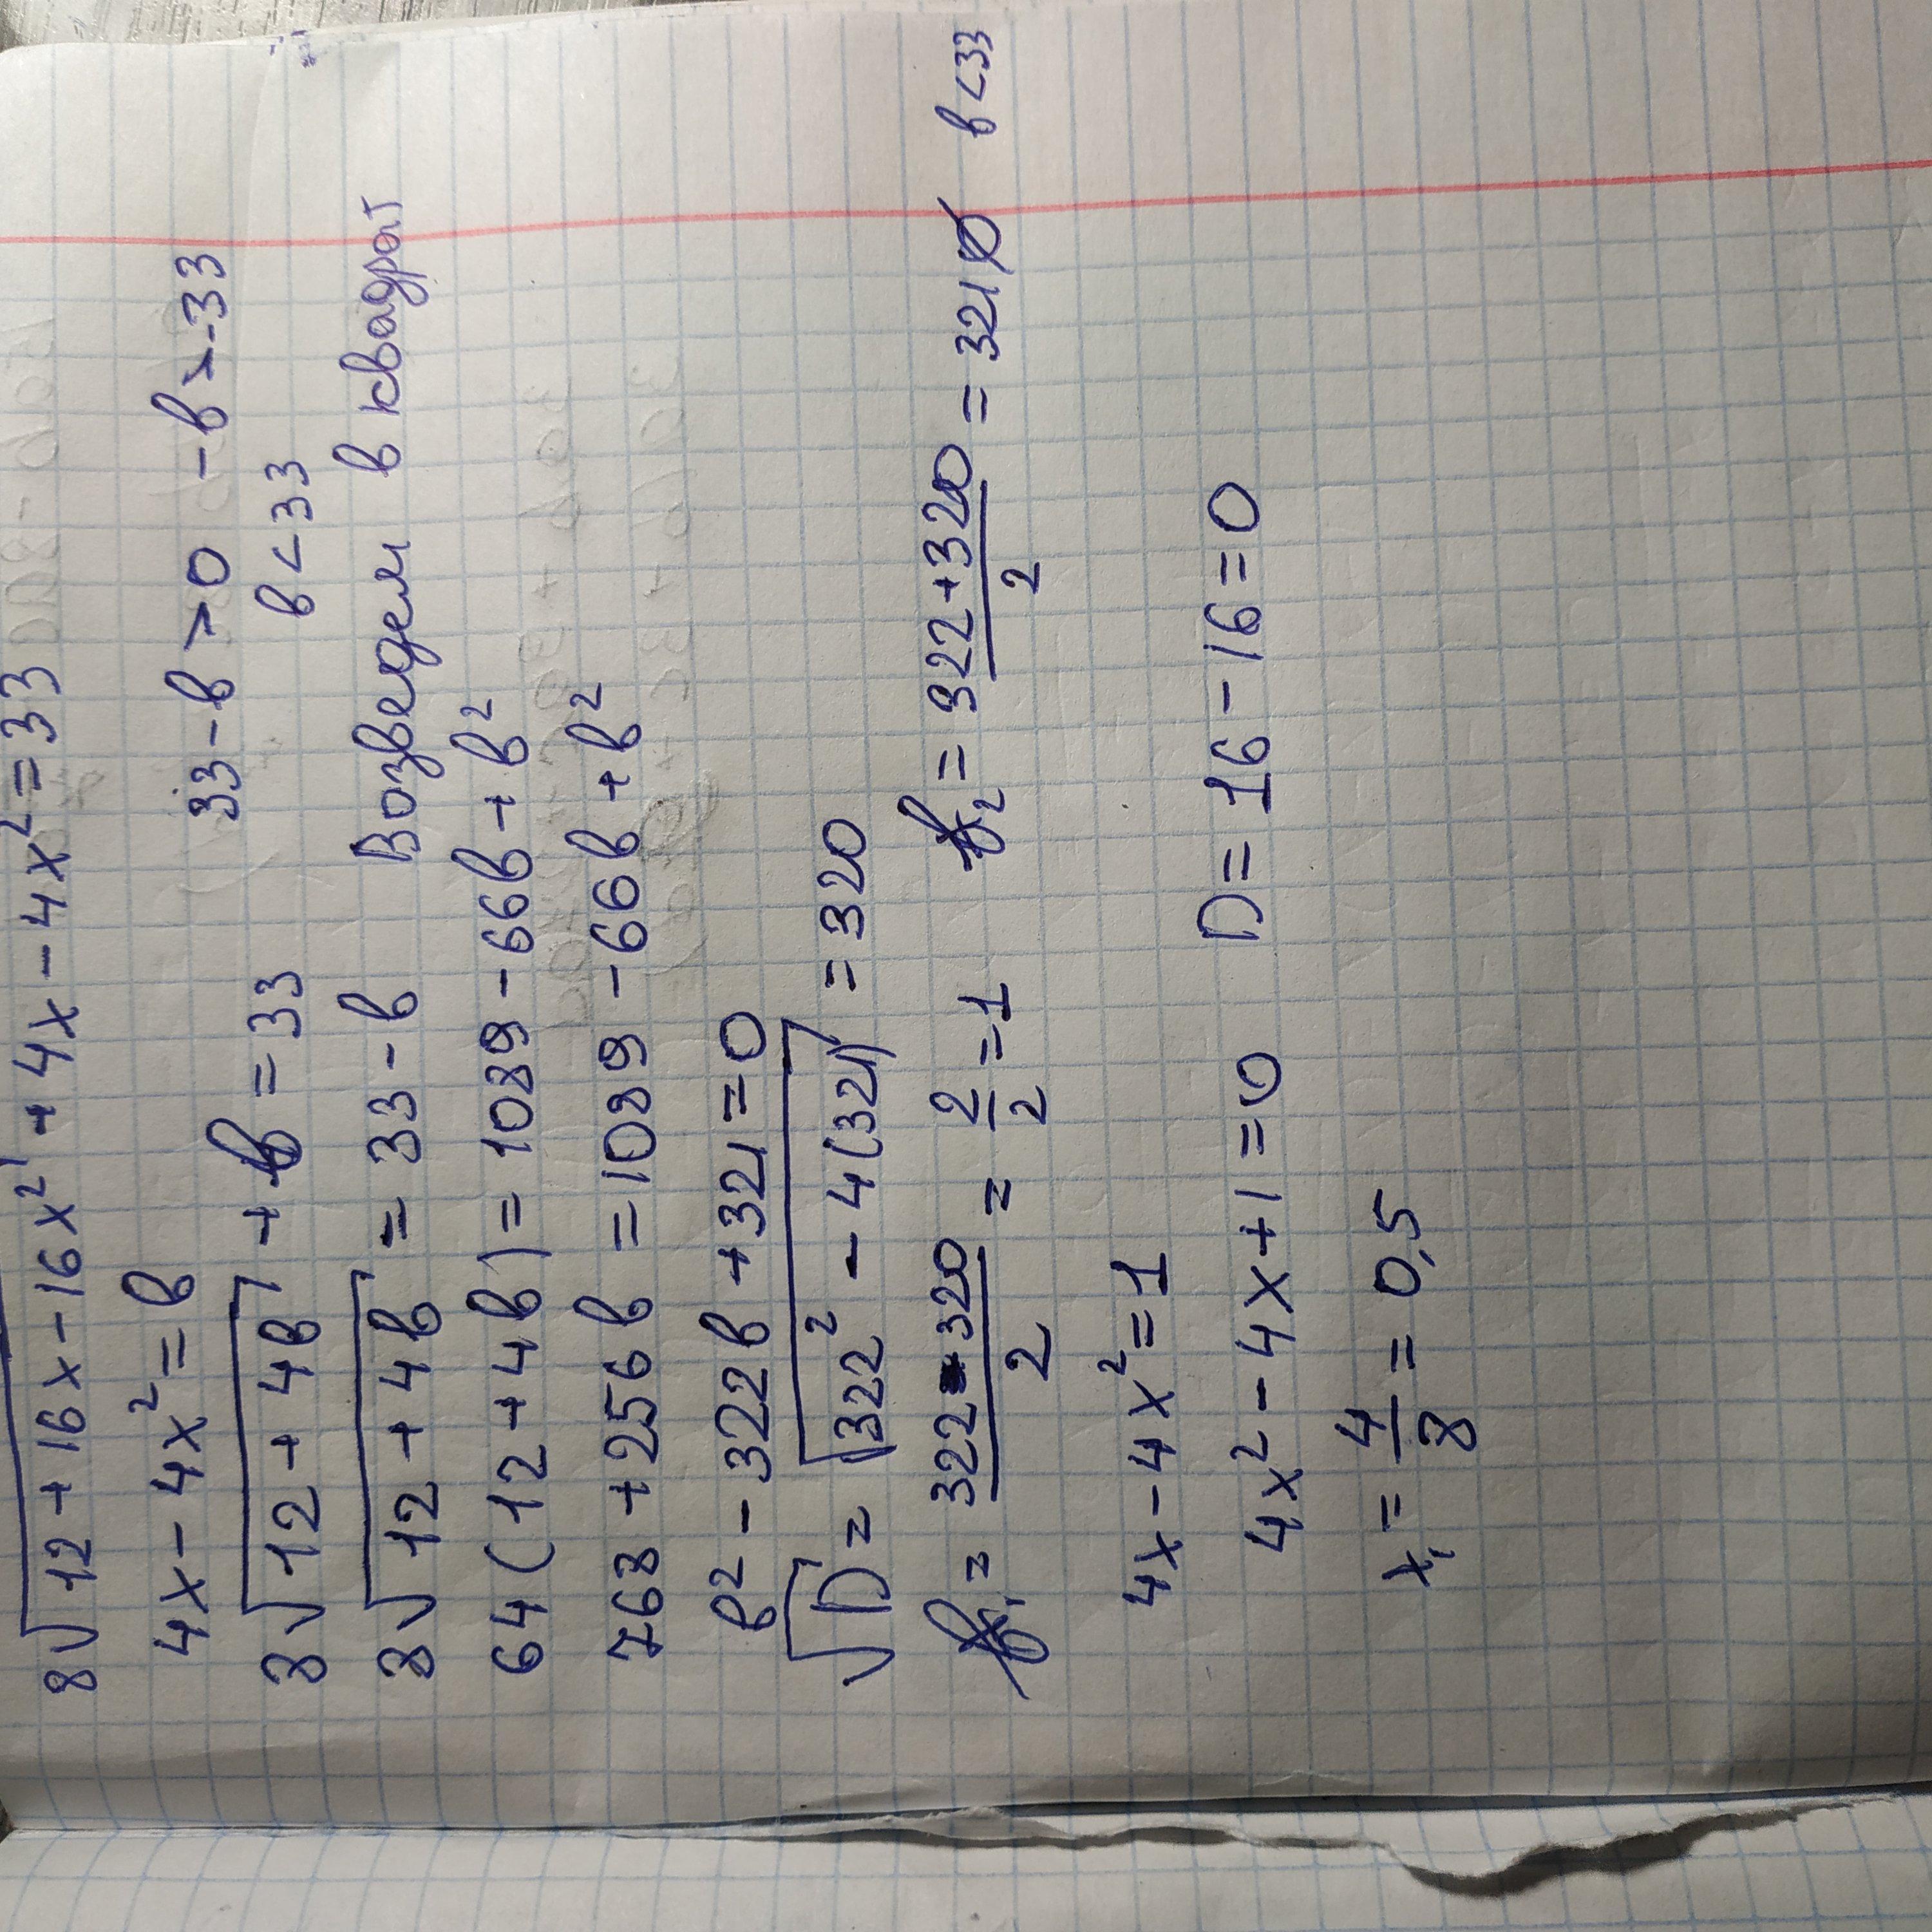 8√12+16x-16x² + 4x-4x²=33
4x-4x²=в 33-в>0 -в>-33
8√12+4в + в=33 в<33
8√12+4в = 33-в Возведем в квадрат
64(12+4в)=1089-66в+в²
768+256в =1089-66в+в²
в²-322в+321=0
√D= √322²-4(321) =320
в₁= 322-320/2 = 2/2 =1 в₂= 322+320/2 =321 ∅ в<33
4x-4x²=1
4x²-4x+1=0 D=16-16=0
x₁= 4/8 =0,5